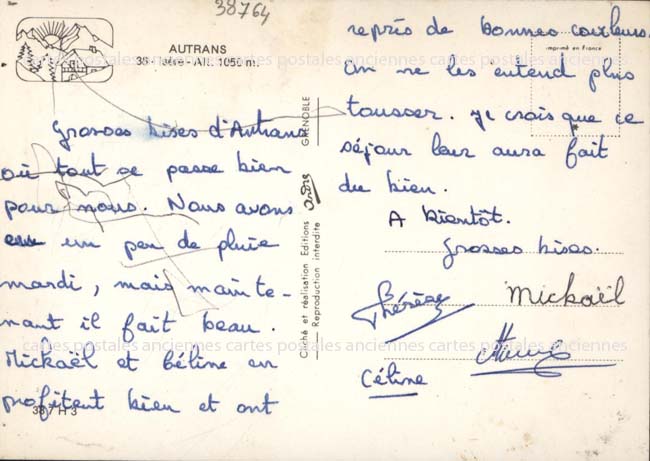 38764
AUTRANS
38 - Isère - Alt. 1050 m.
Grosses bises d'Autrans
où tout se passe bien
pour nous. Nous avons
eu un peu de pluie
mardi, mais mainte-
nant il fait beau.
Mickaël et Céline en
profitent bien et ont
387 H 3
GRENOBLE
Cliché et réalisation Editions André
Reproduction interdite
imprimé en France
repris de bonnes couleurs.
On ne les entend plus
tousser. Je crois que ce
séjour leur aura fait
du bien.
A bientôt.
Grosses bises.
Thérèse
Mickaël
Céline
cartes postales anciennes cartes postales anciennes cartes postales anciennes
cartes postales anciennes cartes postales anciennes cartes postales anciennes